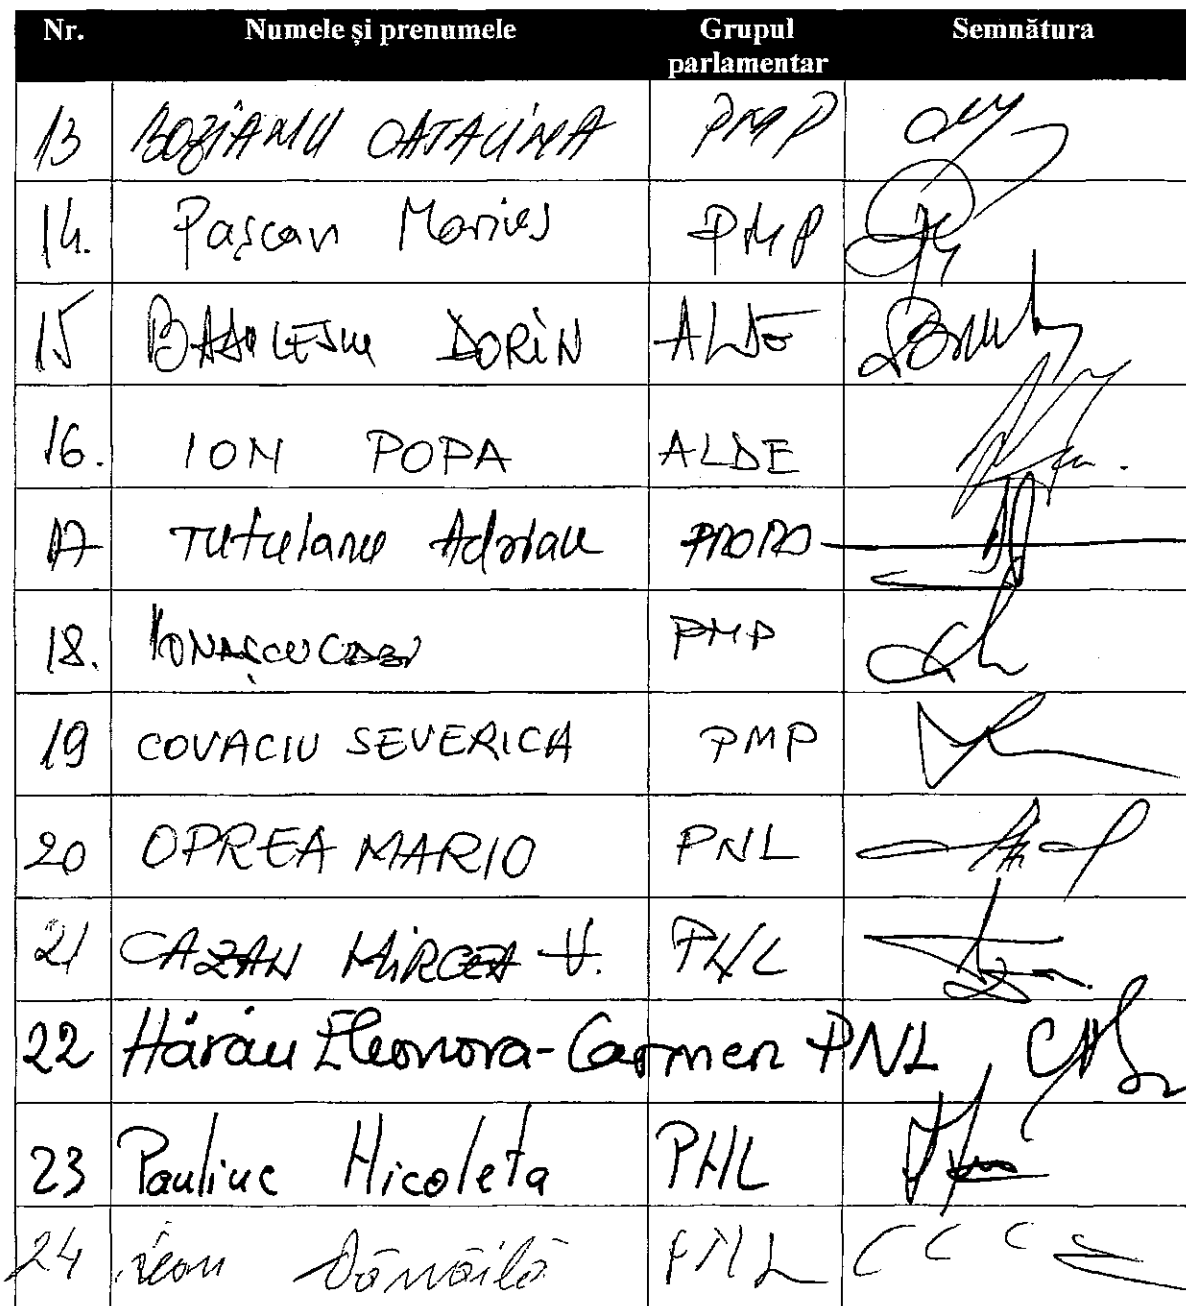 Nr. Numele și prenumele Grupul parlamentar Semnătura
13 BOZIANU CATALINA PMP
14. Pașcan Marius PMP
15 BĂDULESCU DORIN ALDE
16. ION POPA ALDE
17 Tutuianu Adrian PRORO
18. IONAȘCU GABI PMP
19 COVACIU SEVERICA PMP
20 OPREA MARIO PNL
21 CAZAN MIRCEA V. PNL
22 Hărău Eleonora-Carmen PNL
23 Pauliuc Nicoleta PNL
24 Leon Dănăilă PNL